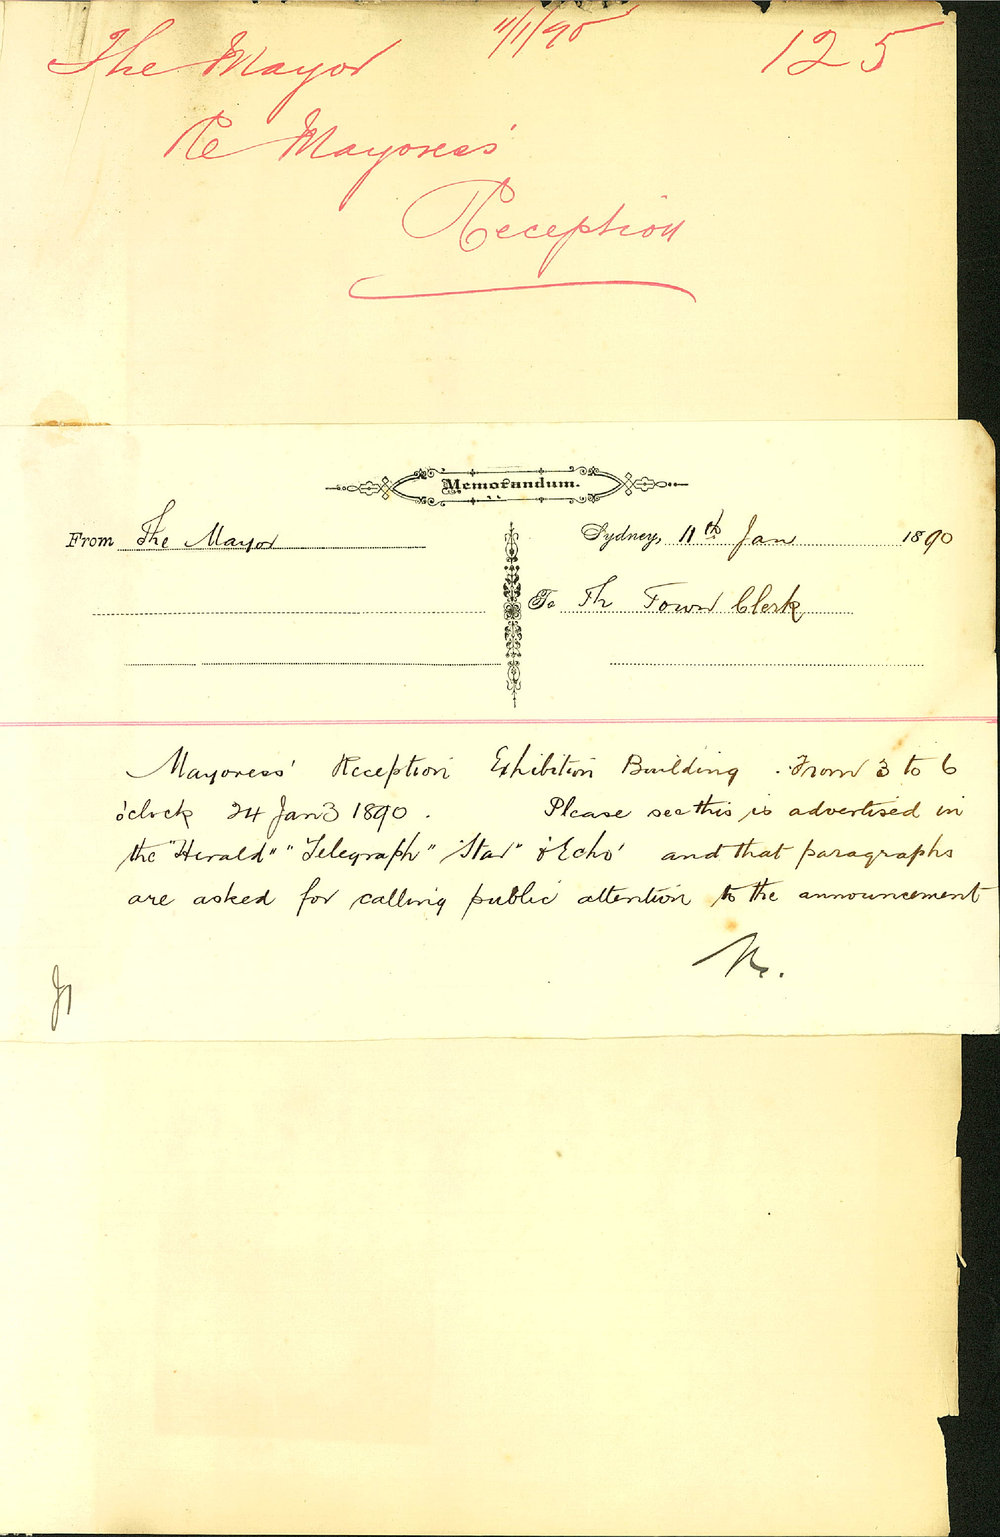 11/1/90
The Mayor 125
Re Mayoress'
Reception
Memorandum.
From The Mayor
Sydney, 11th Jan 1890
To Th Town Clerk
Mayoress' Reception Exhibition Building. From 3 to 6
o'clock 24 Jany 1890. Please see this is advertised in
the "Herald" "Telegraph" "Star" & Echo' and that paragraphs
are asked for calling public attention to the announcement